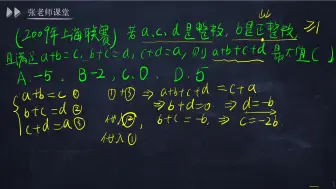 张老师课堂
(2009年上海联赛) 若a,c,d是整数, b是正整数 ≥1
且满足a+b=c, b+c=d, c+d=a, 则 a+b+c+d 最大值( )
A. -5. B -2, C. 0. D. 5
a+b=c ① ①+③ ⇒ a+b+c+d = c+a
b+c=d ② ⇒ b+d=0. ⇒ d=-b
c+d=a ③ 代入②, b+c=-b, ⇒ c=-2b.
代入①